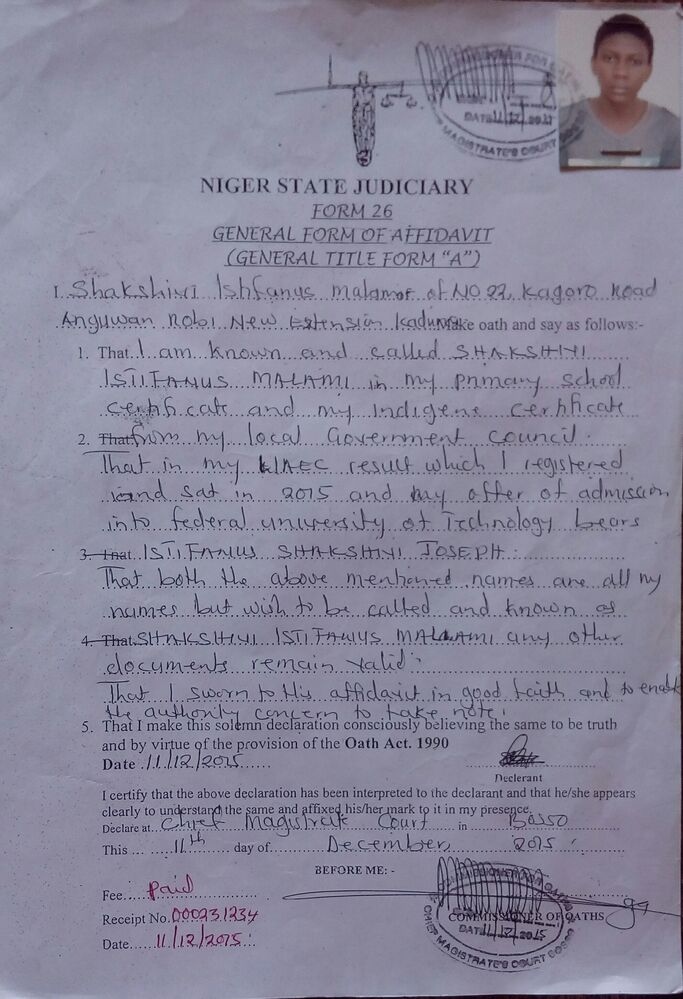 COMMISSIONER FOR OATHS
DATE 11/12/2015
MAGISTRATE'S COURT BOSSO
NIGER STATE JUDICIARY
FORM 26
GENERAL FORM OF AFFIDAVIT
(GENERAL TITLE FORM "A")
I. Shakshivi Istifanus Malami of NO 22, Kagoro Road
Anguwan Robi New Extension Kaduna Make oath and say as follows:-
1. That I am known and called SHAKSHIVI
ISTIFANUS MALAMI in my primary school
certificate and my indigene certificate
2. That from my local Government Council.
That in my WAEC result which I registered
and sat in 2015 and my offer of admission
into federal university of Technology bears
3. That ISTIFANUS SHAKSHIVI JOSEPH.
That both the above mentioned names are all my
names but wish to be called and known as
4. That SHAKSHIVI ISTIFANUS MALAMI any other
documents remain valid.
That I sworn to this affidavit in good faith and to enable
the authority concern to take note.
5. That I make this solemn declaration consciously believing the same to be truth
and by virtue of the provision of the Oath Act. 1990
Date 11/12/2015
Declerant
I certify that the above declaration has been interpreted to the declarant and that he/she appears
clearly to understand the same and affixed his/her mark to it in my presence.
Declare at Chief Magistrate Court in BOSSO
This 11th day of December, 2015
BEFORE ME: -
Fee Paid
Receipt No. 000231234
COMMISSIONER OF OATHS
Date 11/12/2015
COMMISSIONER FOR OATHS
DATE 11/12/2015
CHIEF MAGISTRATE'S COURT BOSSO